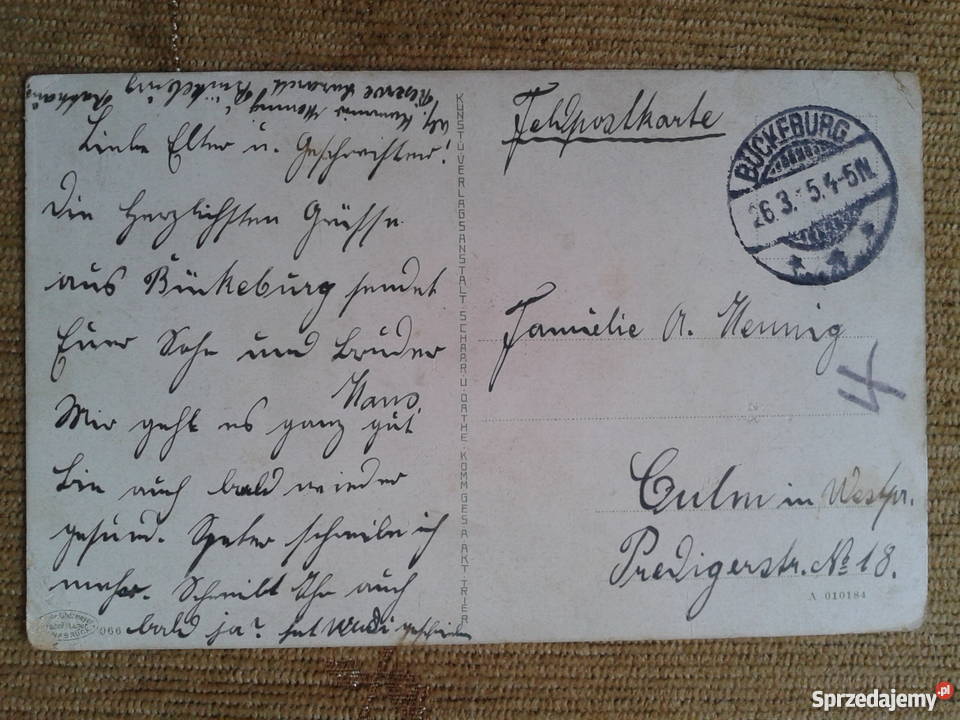 Reserve Lazarett Bückeburg Rathaus
Liebe Elter u. Geschwister!
Die Herzlichsten Grüsse
aus Bückeburg sendet
Euer Sohn und Bruder
Hans.
Mir geht es ganz gut
Bin auch bald wieder
gesund. Später schreibe ich
mehr. Schreibt Ihr auch
bald ja? hat geschrieben
066
KUNST U. VERLAGSANSTALT SCHAAR U. DATHE KOMM. GES. A. AKT. TRIER
Feldpostkarte
BÜCKEBURG
26.3.15.4-5N.
Familie A. Hennig
4
Culm in Westpr.
Predigerstr. No 18.
A 010184
Sprzedajemy.pl